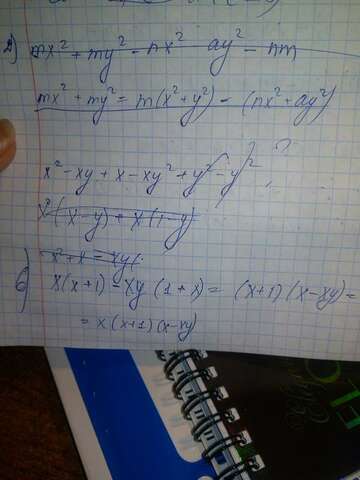 2) mx² + my² - nx² ay² - nm
mx² + my² = m(x²+y²) - (nx²+ay²)
x² - xy + x - xy² + y² - y² ?
x²(x-y) + x(1-y)
x²+x = xy(
б) x(x+1) - xy(1+x) = (x+1)(x-xy) =
= x(x+1)(x-xy)